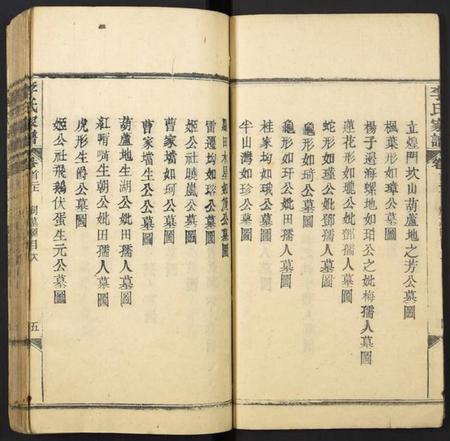 立煌門坎山葫蘆地之芳公墓圖
楓葉形如璋公墓圖
楊子過海螺地如珀公之妣梅孺人墓圖
蓮花形如瓏公妣鄧孺人墓圖
蛇形如瑾公妣鄧孺人墓圖
龜形如琦公墓圖
龜形如玕公妣田孺人墓圖
桂家均如珴公墓圖
半山灣如珍公墓圖
公墓圖
雷邊均如公墓圖
姬公社曉嵐公墓圖
曹家壋如珂公墓圖
曹家壋生公公墓圖
葫蘆地生湖公妣田孺人墓圖
生朝公妣田孺人墓圖
虎形生爵公墓圖
姬公社飛鵝伏蛋生元公墓圖
李氏家譜
卷首三
祠墓圖目次
五
李氏家譜
卷